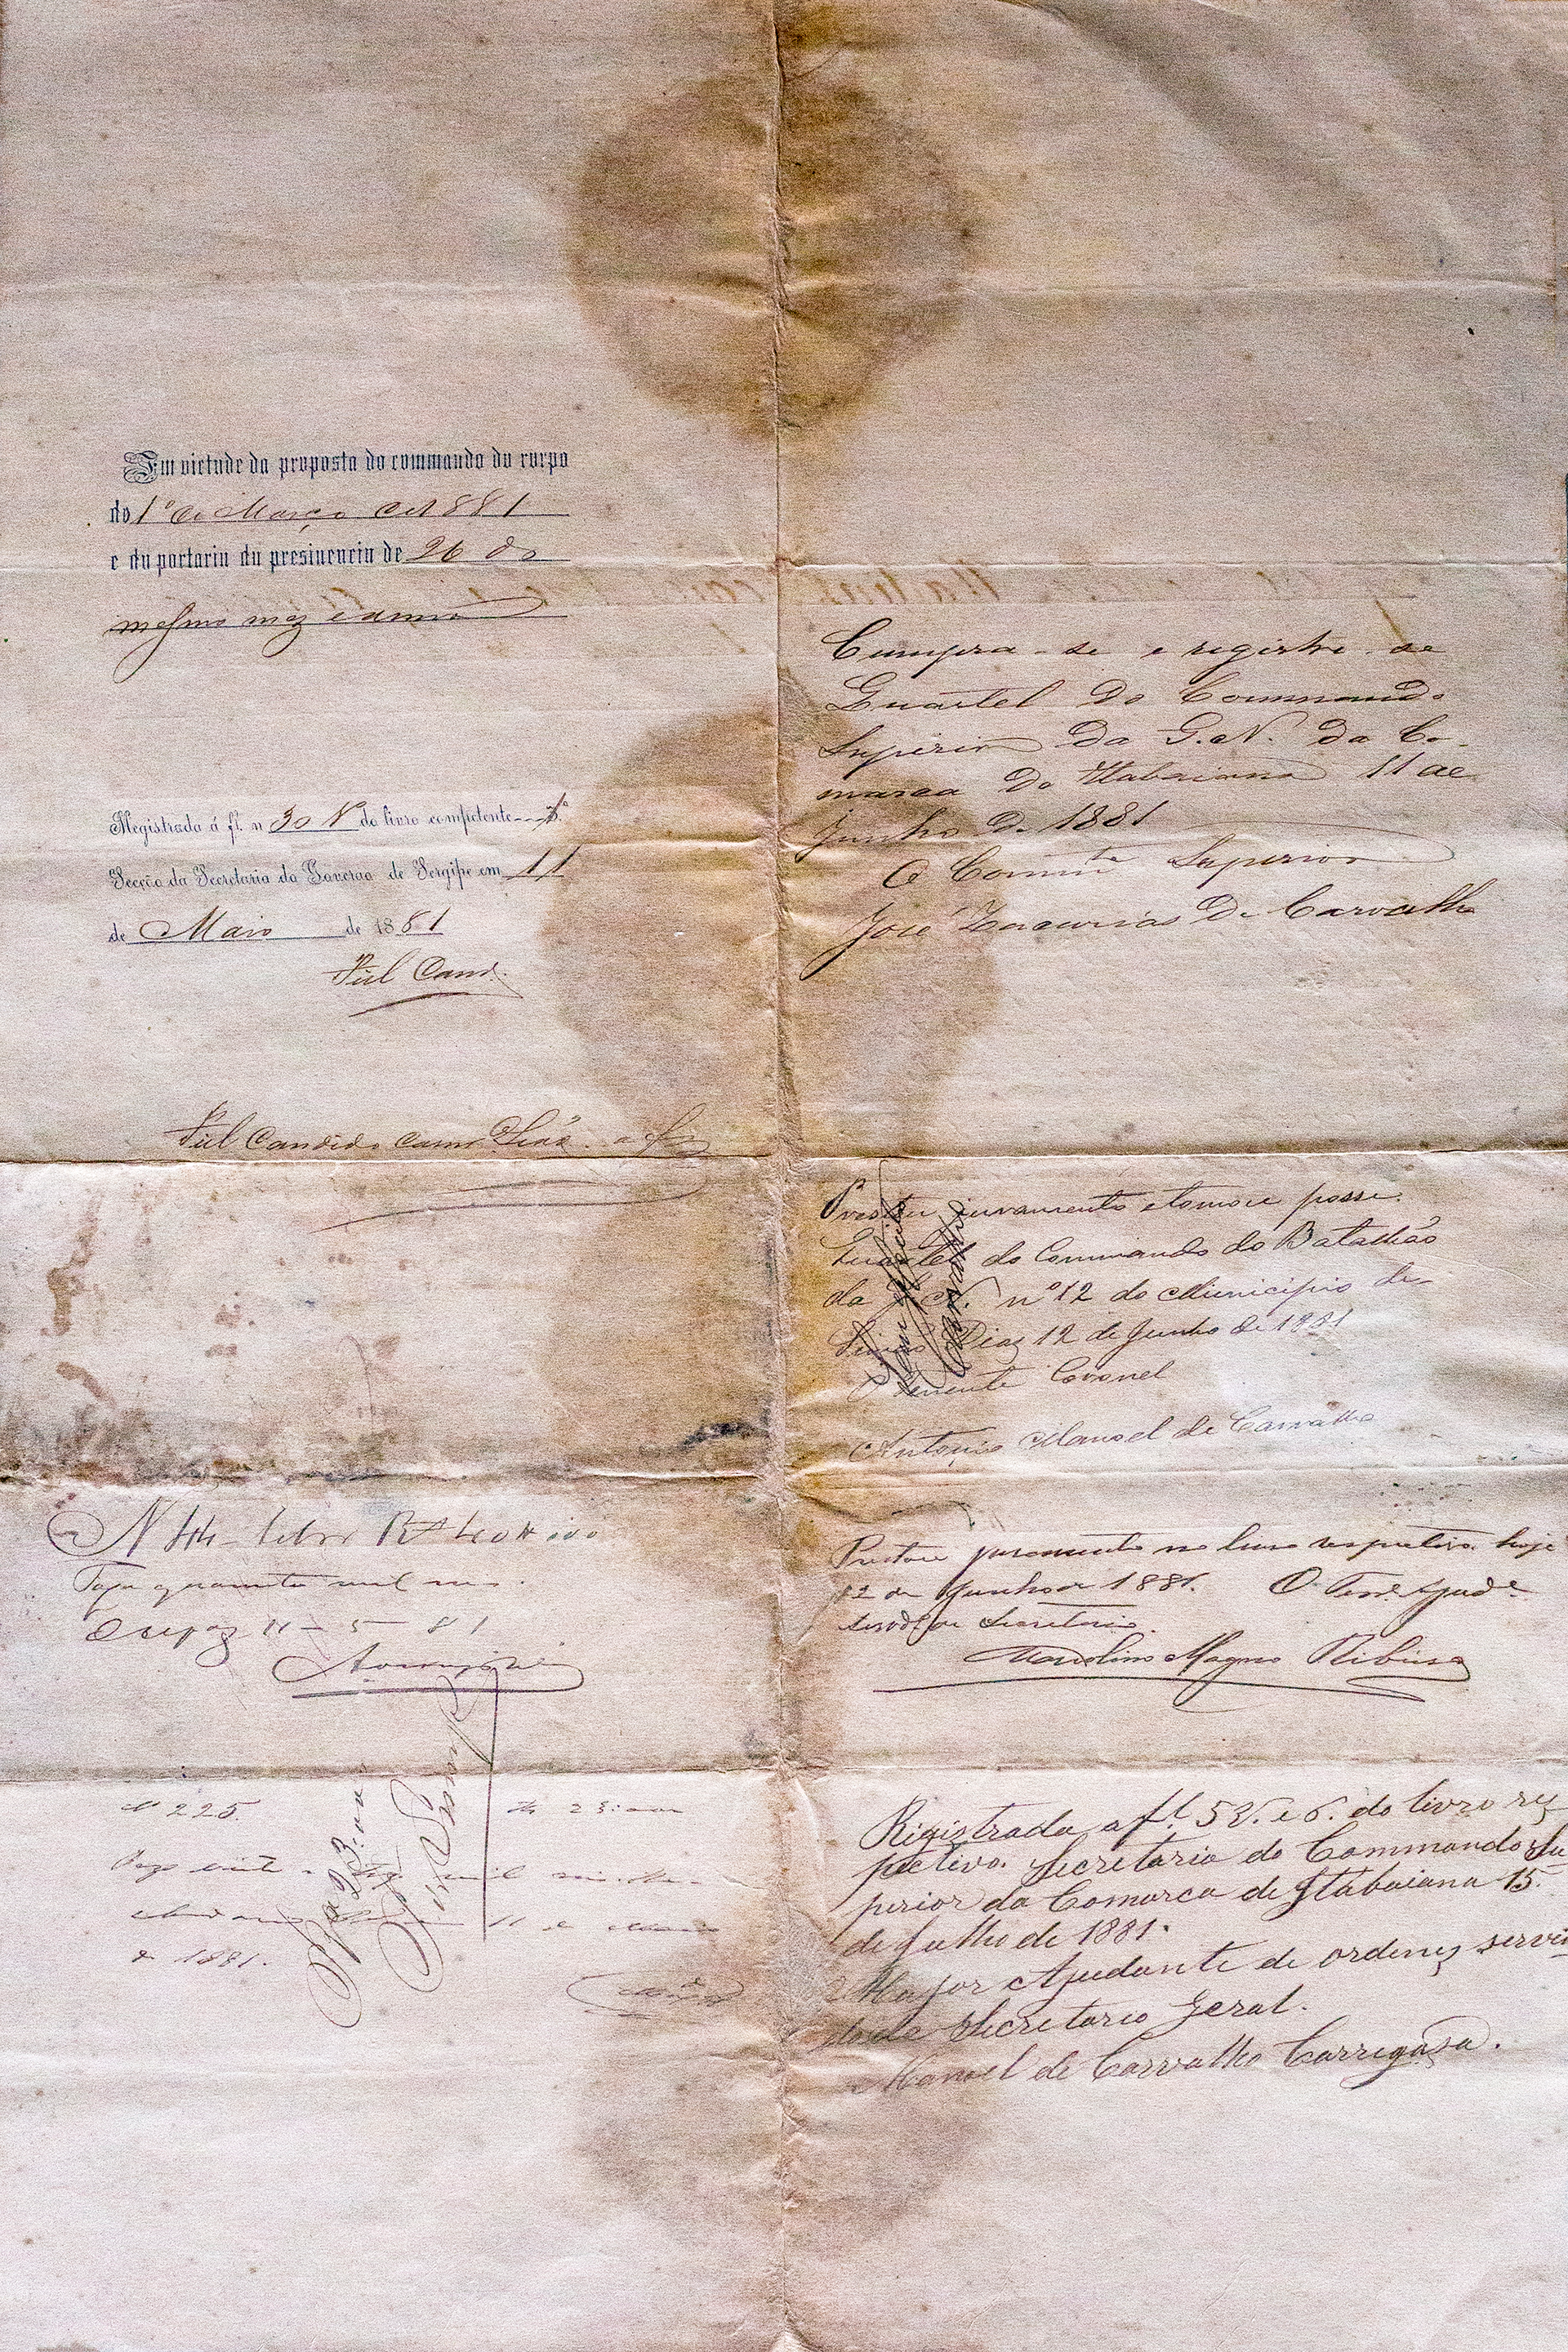 Em virtude da proposta do commando do corpo
do 1º de Março de 1881
e da portaria da presidencia de 26 do
mesmo mez e anno
Registrada á fl. n 30 V do livro competente 1ª
Secção da Secretaria do Governo de Sergipe em 11
de Maio de 1881
Fiel Cand.
Fiel Candido
N 44 40#000
Pagou quarenta mil reis.
11 - 5 - 81
Nº 225. 23:000
Pagou vinte e mil
11 de
de 1881.
23:000
Cumpra-se e registre-se
Quartel do Commando
Superior da G. N. da Co-
marca de Itabaiana 11 de
Junho de 1881
O Commte Superior
José Zacarias de Carvalho
Prestou juramento e tomou posse.
Quartel do Commando do Batalhão
da G. N. nº 12 do Municipio de
Simão Dias 12 de Junho de 1881
O Tenente Coronel
Antonio Manoel de Carvalho
Prestou juramento no livro respectivo hoje
12 de Junho de 1881. O Tene Ajude
servde de Secretario.
Magno Ribeiro
Registrada a fl. 5 V. e 6. do livro res-
pectivo. Secretaria do Commando Su
perior da Comarca de Itabaiana 15
de Julho de 1881.
O Major Ajudante de ordens servin
do de Secretario Geral.
Manoel de Carvalho Carregosa.